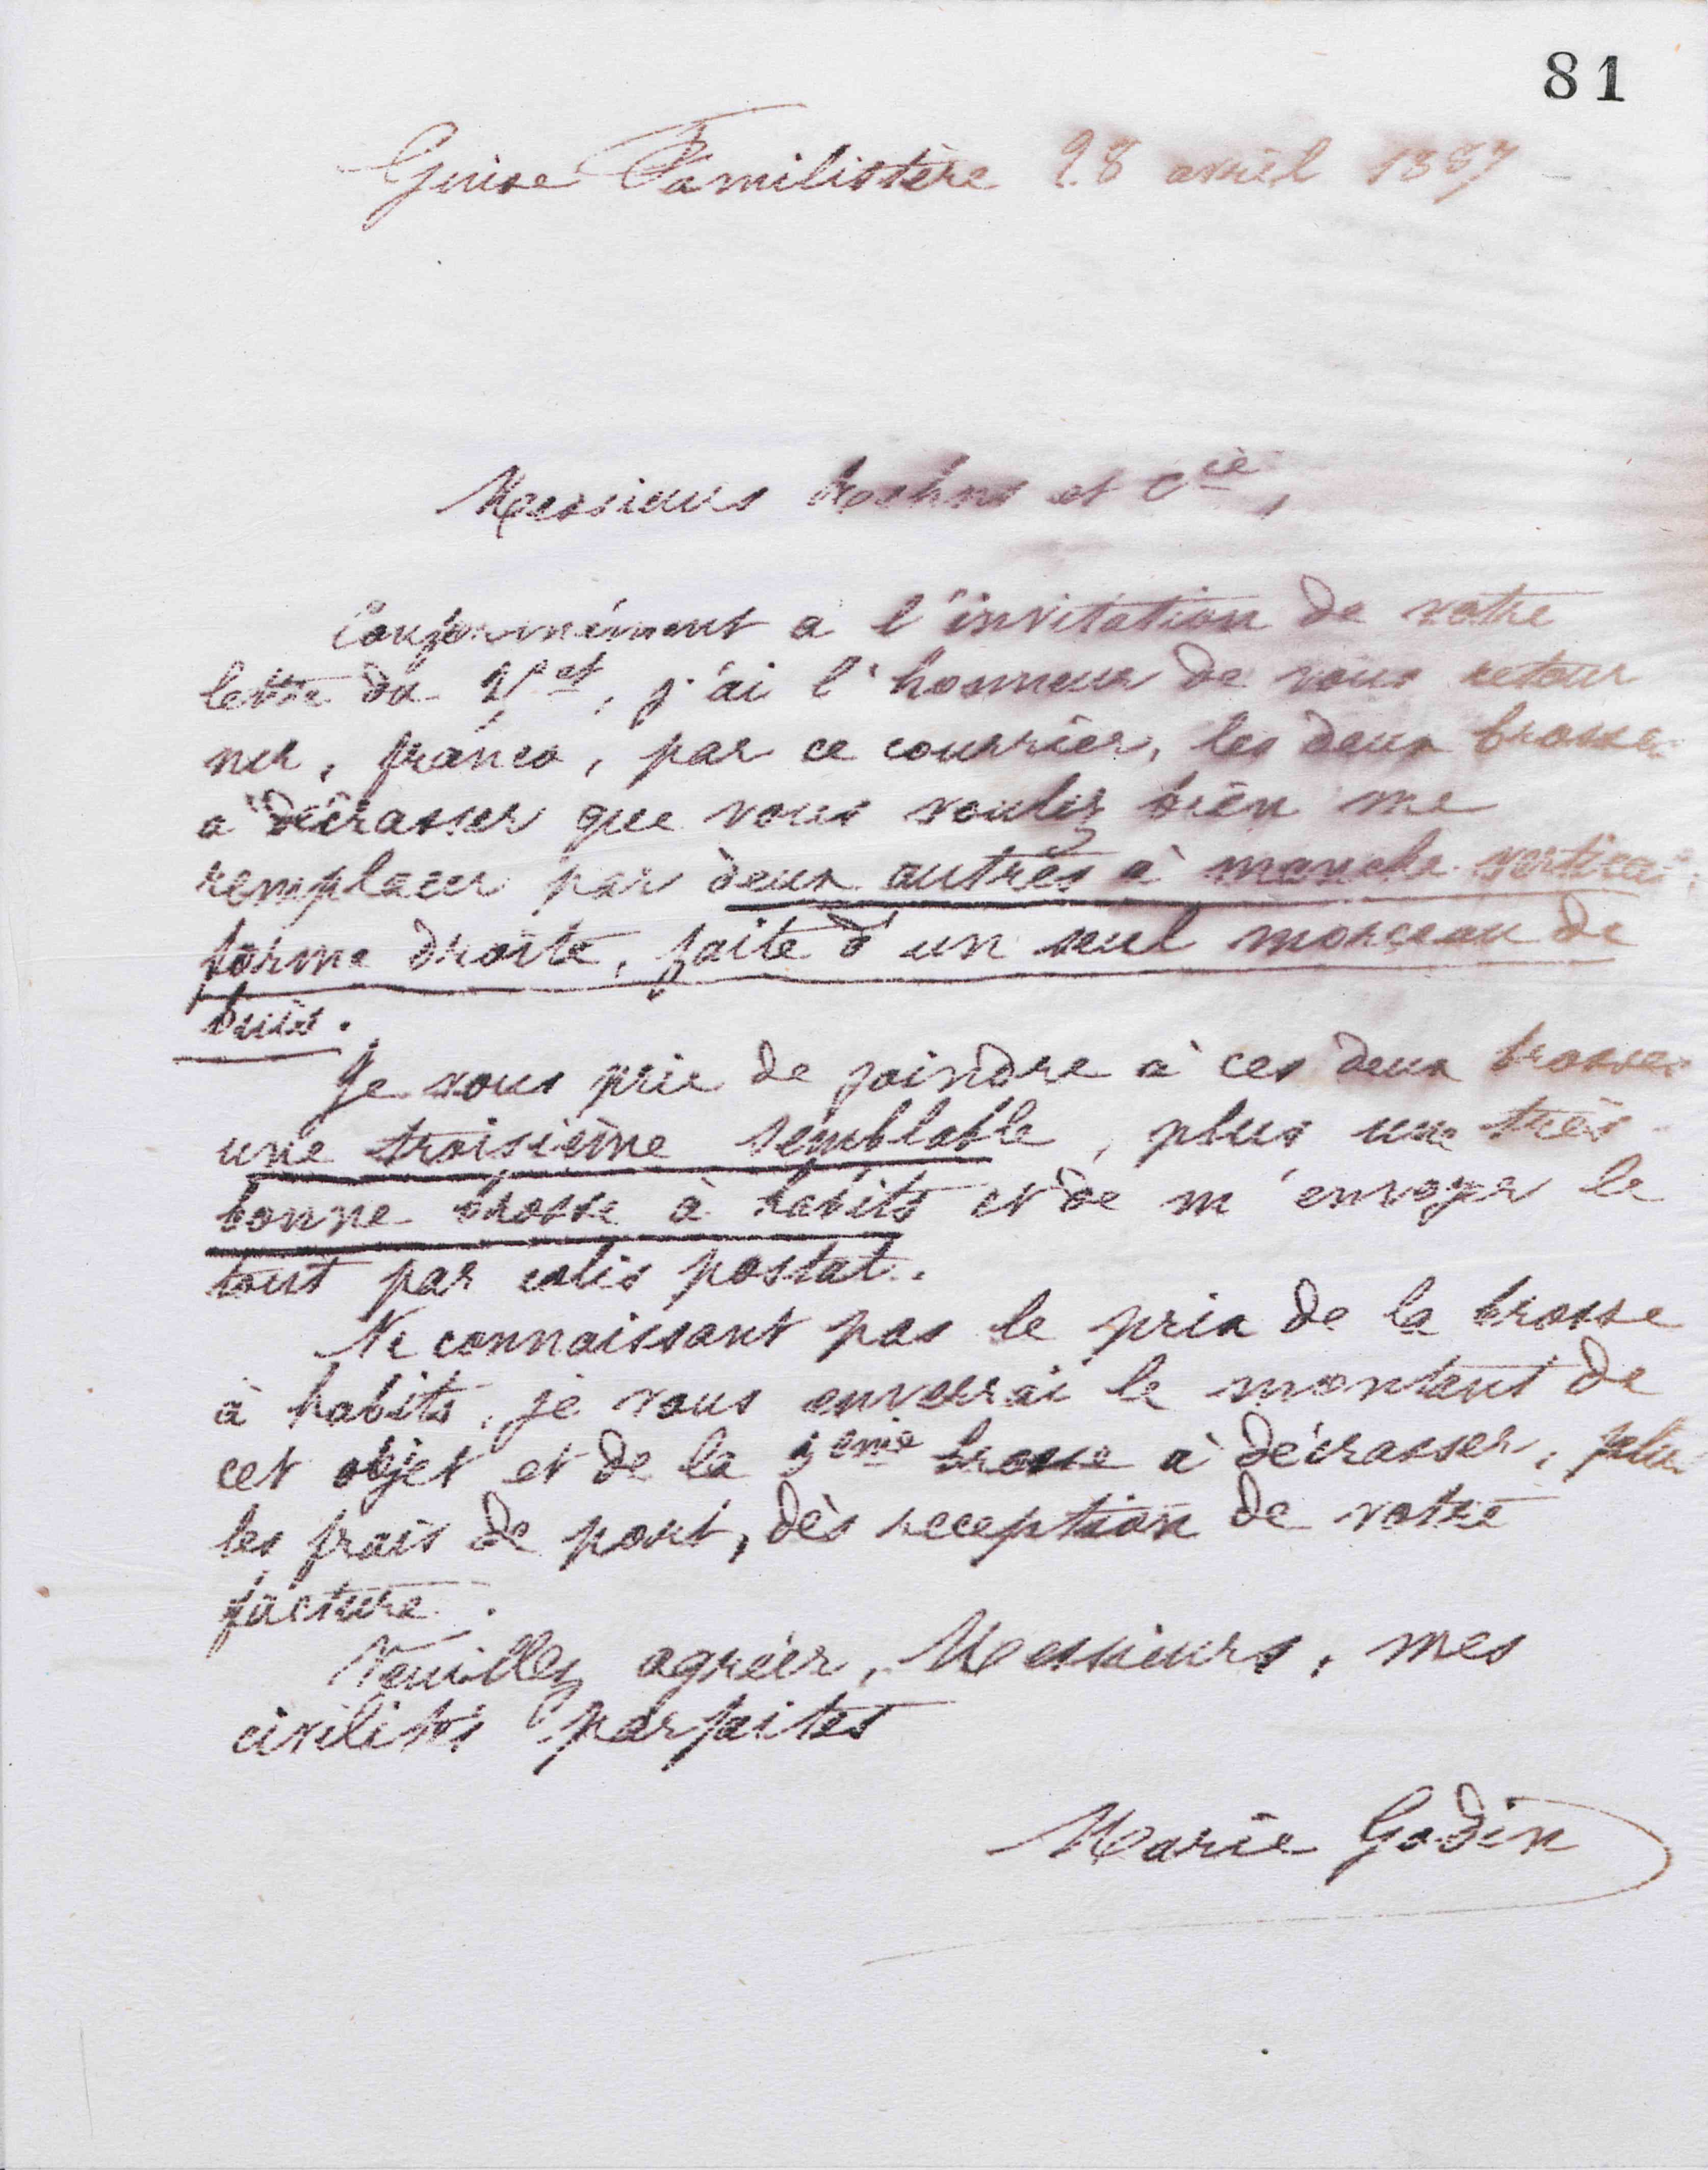 81
Guise Familistère 28 avril 1887
Messieurs et Cie,
Conformément à l'invitation de votre
lettre du ct, j'ai l'honneur de vous retour
ner, franco, par ce courrier, les deux brosses
à décrasser que vous voulez bien me
remplacer par deux autres à manche vertical
forme droite, faite d'un seul morceau de
buis.
Je vous prie de joindre à ces deux brosses
une troisième semblable, plus une très
bonne brosse à habits et de m'envoyer le
tout par colis postal.
Ne connaissant pas le prix de la brosse
à habits, je vous enverrai le montant de
cet objet et de la 3ème brosse à décrasser, plus
les frais de port, dès reception de votre
facture.
Veuillez agréer, Messieurs, mes
civilités parfaites
Marie Godin